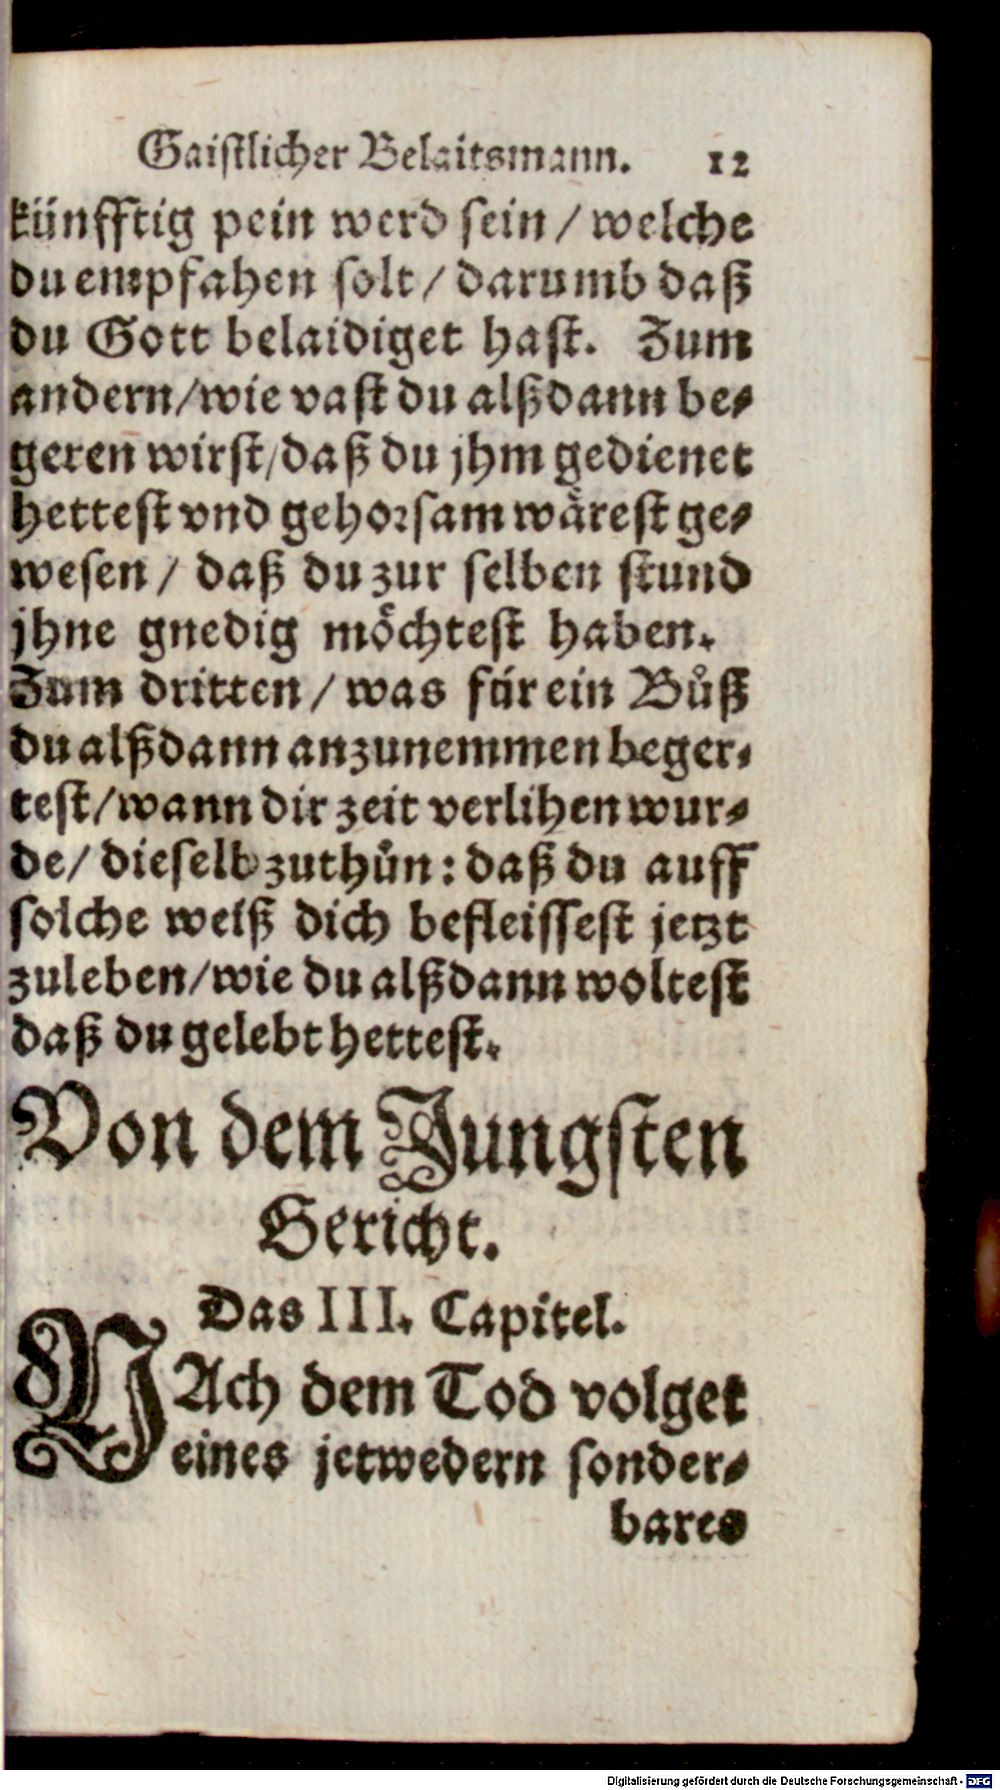 Gaistlicher Belaitsmann. 12
künfftig pein werd sein / welche
du empfahen solt / darumb daß
du Gott belaidiget hast. Zum
andern/wie vast du alßdann be-
geren wirst/daß du jhm gedienet
hettest vnd gehorsam wåre­st ge-
wesen / daß du zur selben stund
jhne gnedig möchtest haben.
Zum dritten / was für ein Bůß
du alßdann anzunemmen beger-
test/wann dir zeit verlihen wur-
de/ dieselb zuthůn: daß du auff
solche weiß dich befleissest jetzt
zuleben/wie du alßdann woltest
daß du gelebt hettest.
Von dem Jungsten
Gericht.
Das III. Capitel.
NAch dem Tod volget
eines jetwedern sonder-
bares
Digitalisierung gefördert durch die Deutsche Forschungsgemeinschaft - DFG